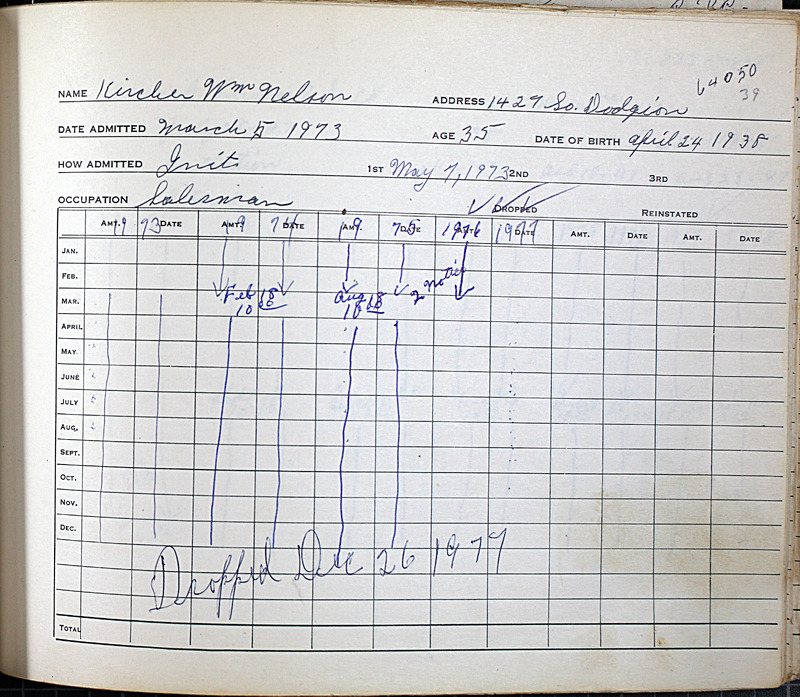 64050
39
NAME Kircher Wm Nelson ADDRESS 1429 So. Dodgion
DATE ADMITTED March 5 1973 AGE 35 DATE OF BIRTH April 24 1938
HOW ADMITTED Init. 1ST May 7, 1973 2ND 3RD
OCCUPATION Salesman DROPPED REINSTATED
AMT. 19 73 DATE AMT. 19 74 DATE AMT. 19 75 DATE 1976 AMT. DATE AMT. DATE AMT. DATE
JAN.
FEB. notice
MAR. Feb 18 Aug 18 2
10 18
APRIL
MAY.
JUNE
JULY
AUG.
SEPT.
OCT.
NOV.
DEC.
Dropped Dec 26 1977
TOTAL